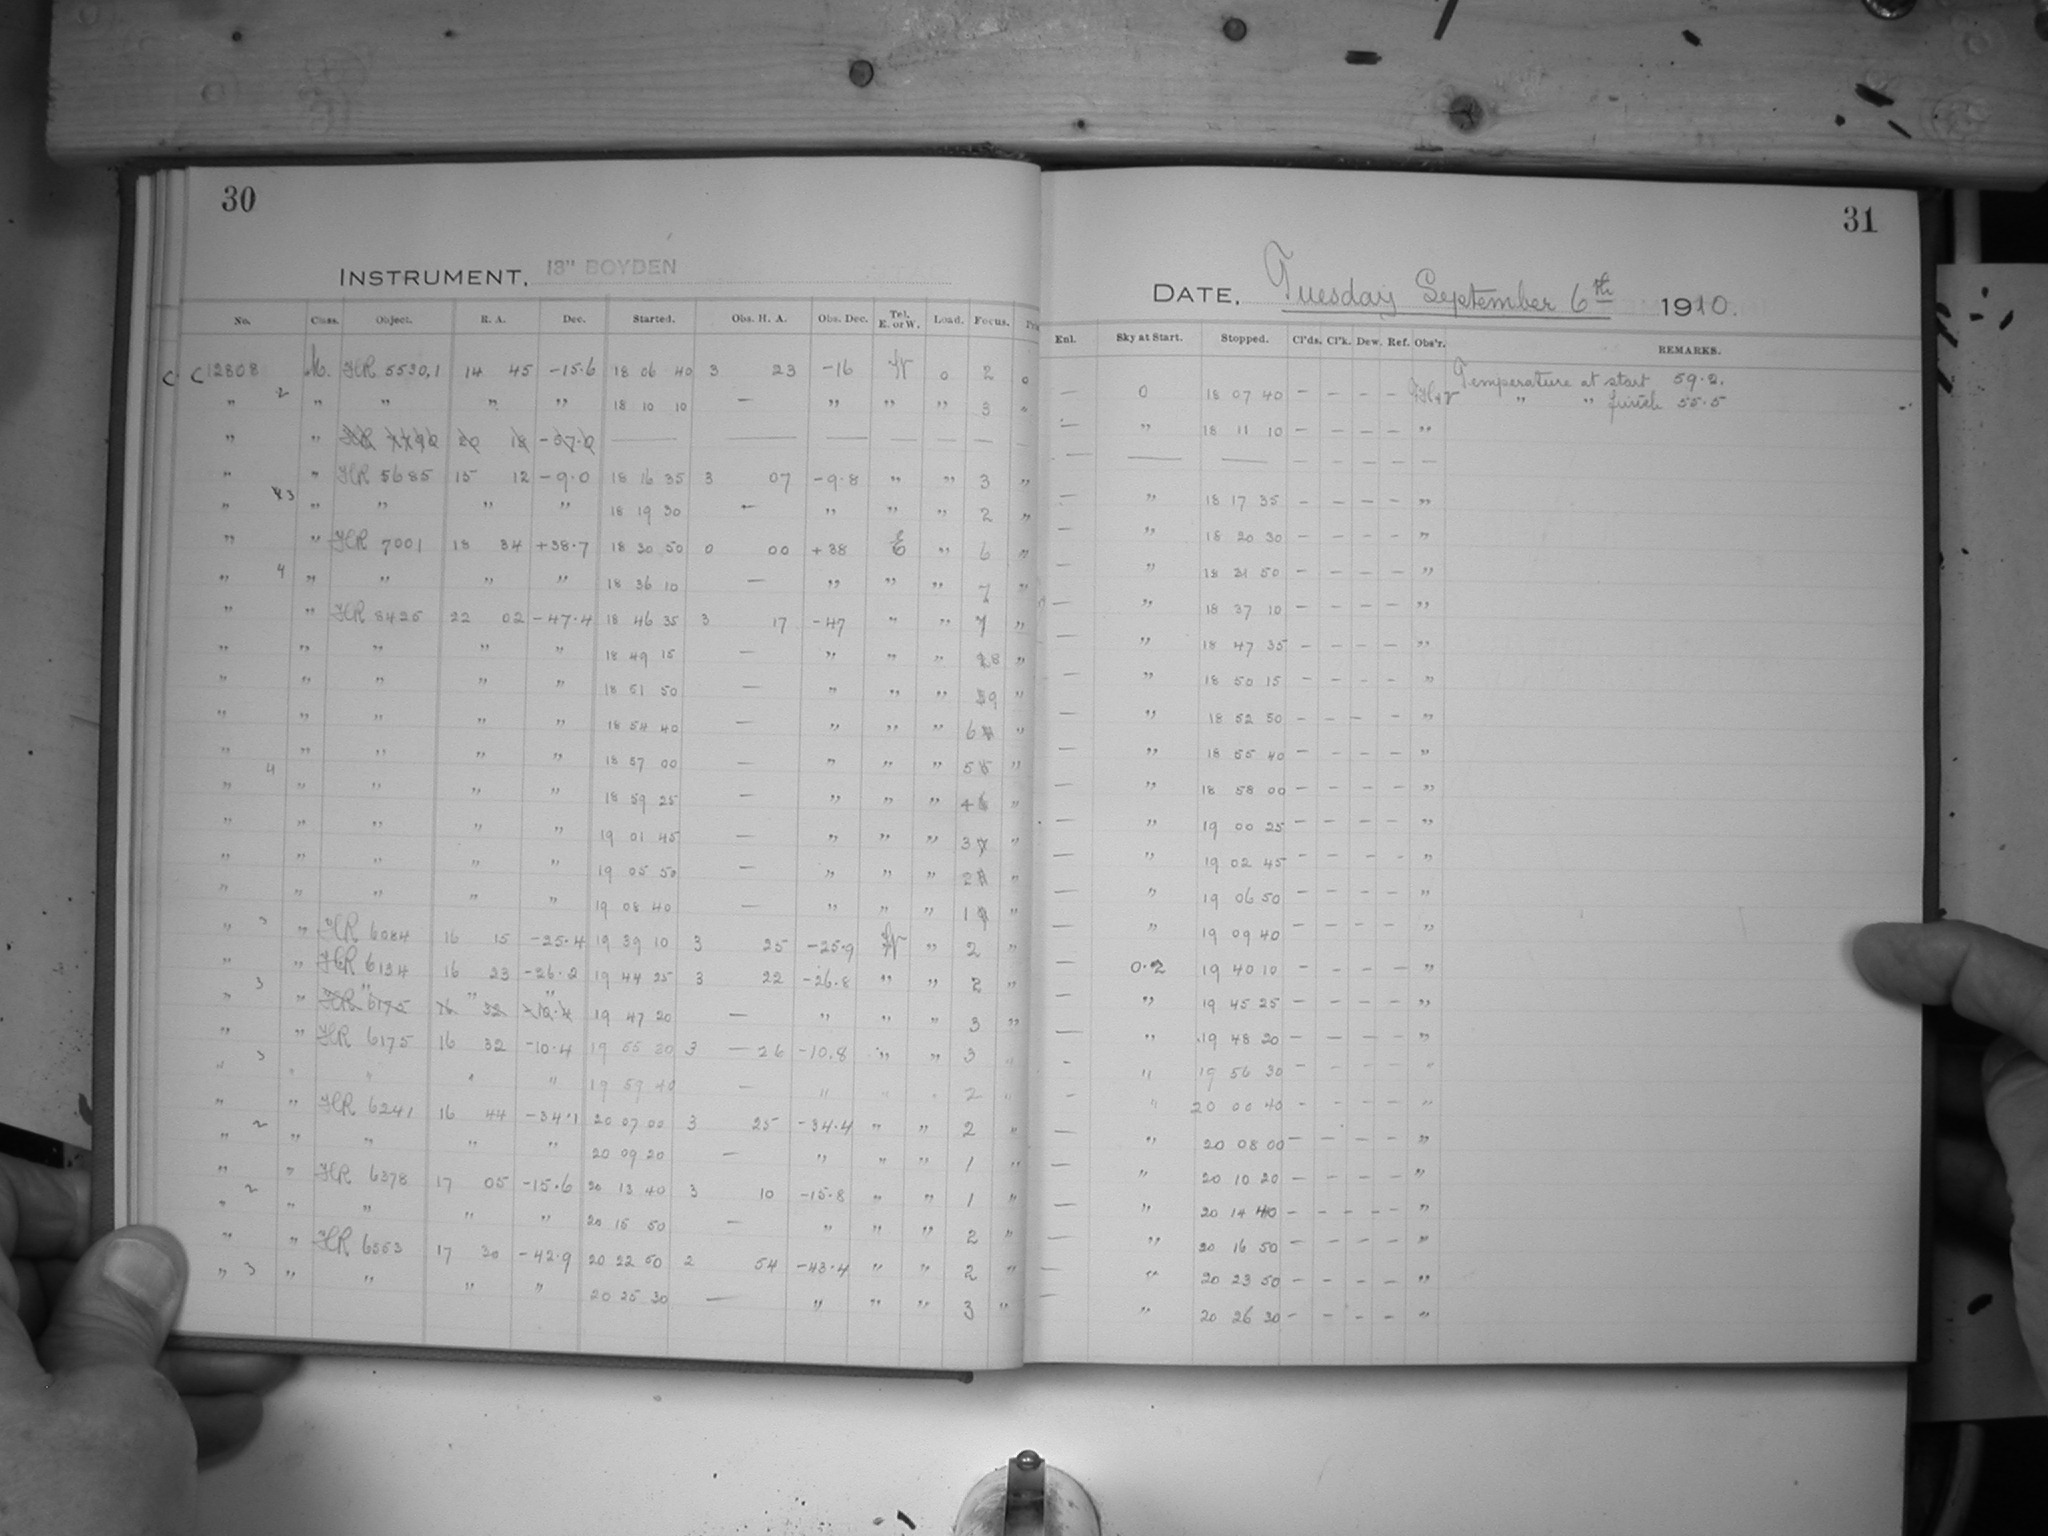 30
INSTRUMENT, 13" BOYDEN
No. Class. Object. R. A. Dec. Started. Obs. H. A. Obs. Dec. Tel. E. or W. Load. Focus.
C C12808 M. HR 5530,1 14 45 -15.6 18 06 40 3 23 -16 W 0 2 0
" 2 " " " " 18 10 10 — " " " 3 "
" " 20 18 -57.0 — — — — — — —
" " HR 5685 15 12 -9.0 18 16 35 3 07 -9.8 " " 3 "
" 3 " " " " 18 19 30 — " " " 2 "
" " HR 7001 18 34 +38.7 18 30 50 0 00 +38 E " 6 "
" 4 " " " " 18 36 10 — " " " 7 "
" " HR 8425 22 02 -47.4 18 46 35 3 17 -47 " " 7 "
" " " " " 18 49 15 — " " " 8 "
" " " " " 18 51 50 — " " " 9 "
" " " " " 18 54 40 — " " " 6 "
" " " " " 18 57 00 — " " " 5 "
" 4 " " " " 18 59 25 — " " " 4 "
" " " " " 19 01 45 — " " " 3 "
" " " " " 19 05 50 — " " " 2 "
" " " " " 19 08 40 — " " " 1 "
" 3 " HR 6084 16 15 -25.4 19 39 10 3 25 -25.9 W " 2 "
" " HR 6134 16 23 -26.2 19 44 25 3 22 -26.8 " " 2 "
" 3 " HR 6175 " 16 32 " -10.4 " 19 47 20 — " " " 3 "
" " HR 6175 16 32 -10.4 19 55 30 3 — 26 -10.8 " " 3 "
" 3 " " " " 19 59 40 — " " " 2 "
" " HR 6241 16 44 -34.1 20 07 00 3 25 -34.4 " " 2 "
" 2 " " " " 20 09 20 — " " " 1 "
" " HR 6378 17 05 -15.6 20 13 40 3 10 -15.8 " " 1 "
" 2 " " " " 20 15 50 — " " " 2 "
" " HR 6553 17 30 -42.9 20 22 50 2 54 -43.4 " " 2 "
" 3 " " " " 20 25 30 — " " " 3 "
31
DATE, Tuesday September 6th 1910.
Enl. Sky at Start. Stopped. Cl'ds. Cl'k. Dew. Ref. Obs'r. REMARKS.
Temperature at start 59.2.
— 0 18 07 40 — — — — " " finish 55.5
— " 18 11 10 — — — — "
— — — — — — — —
— " 18 17 35 — — — — "
— " 18 20 30 — — — — "
— " 18 31 50 — — — — "
— " 18 37 10 — — — — "
— " 18 47 35 — — — — "
— " 18 50 15 — — — — "
— " 18 52 50 — — — — "
— " 18 55 40 — — — — "
— " 18 58 00 — — — — "
— " 19 00 25 — — — — "
— " 19 02 45 — — — — "
— " 19 06 50 — — — — "
— " 19 09 40 — — — — "
— 0.2 19 40 10 — — — — "
— " 19 45 25 — — — — "
— " 19 48 20 — — — — "
— " 19 56 30 — — — — "
— " 20 00 40 — — — — "
— " 20 08 00 — — — — "
— " 20 10 20 — — — — "
— " 20 14 40 — — — — "
— " 20 16 50 — — — — "
— " 20 23 50 — — — — "
— " 20 26 30 — — — — "